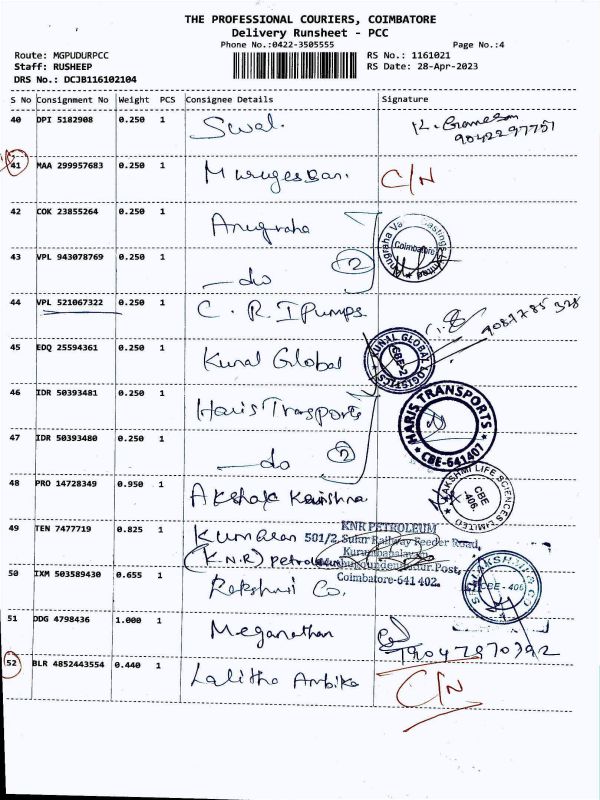 THE PROFESSIONAL COURIERS, COIMBATORE
Delivery Runsheet - PCC
Phone No.:0422-3505555
Page No.:4
Route: MGPUDURPCC
RS No.: 1161021
Staff: RUSHEEP
RS Date: 28-Apr-2023
DRS No.: DCJB116102104
S No Consignment No Weight PCS Consignee Details Signature
40 DPI 5182908 0.250 1 Swal.
9042297751
41 MAA 299957683 0.250 1 Murugessan. C/N
42 COK 23855264 0.250 1 Anugraha
Coimbatore
43 VPL 943078769 0.250 1 —do 2
44 VPL 521067322 0.250 1 C. R. I Pumps
9087785328
45 EDQ 25594361 0.250 1 Kunal Global
KUNAL GLOBAL LOGISTICS
CBE-2
46 IDR 50393481 0.250 1 Haris Transports
HARIS TRANSPORTS
CBE-641407
47 IDR 50393480 0.250 1 —do 2
48 PRO 14728349 0.950 1 Akshaya Krishna
LAKSHMI LIFE SCIENCES LIMITED
CBE
-406.
49 TEN 7477719 0.825 1 Kumaran
KNR PETROLEUM
501/2, Sulur Railway Feeder Road,
(K.N.R) Petrol
Coimbatore-641 402.
50 IXM 503589430 0.655 1 Co.
CBE - 406
51 DDG 4798436 1.000 1 Meganathan
52 BLR 4852443554 0.440 1 Lalitha Ambika C/N